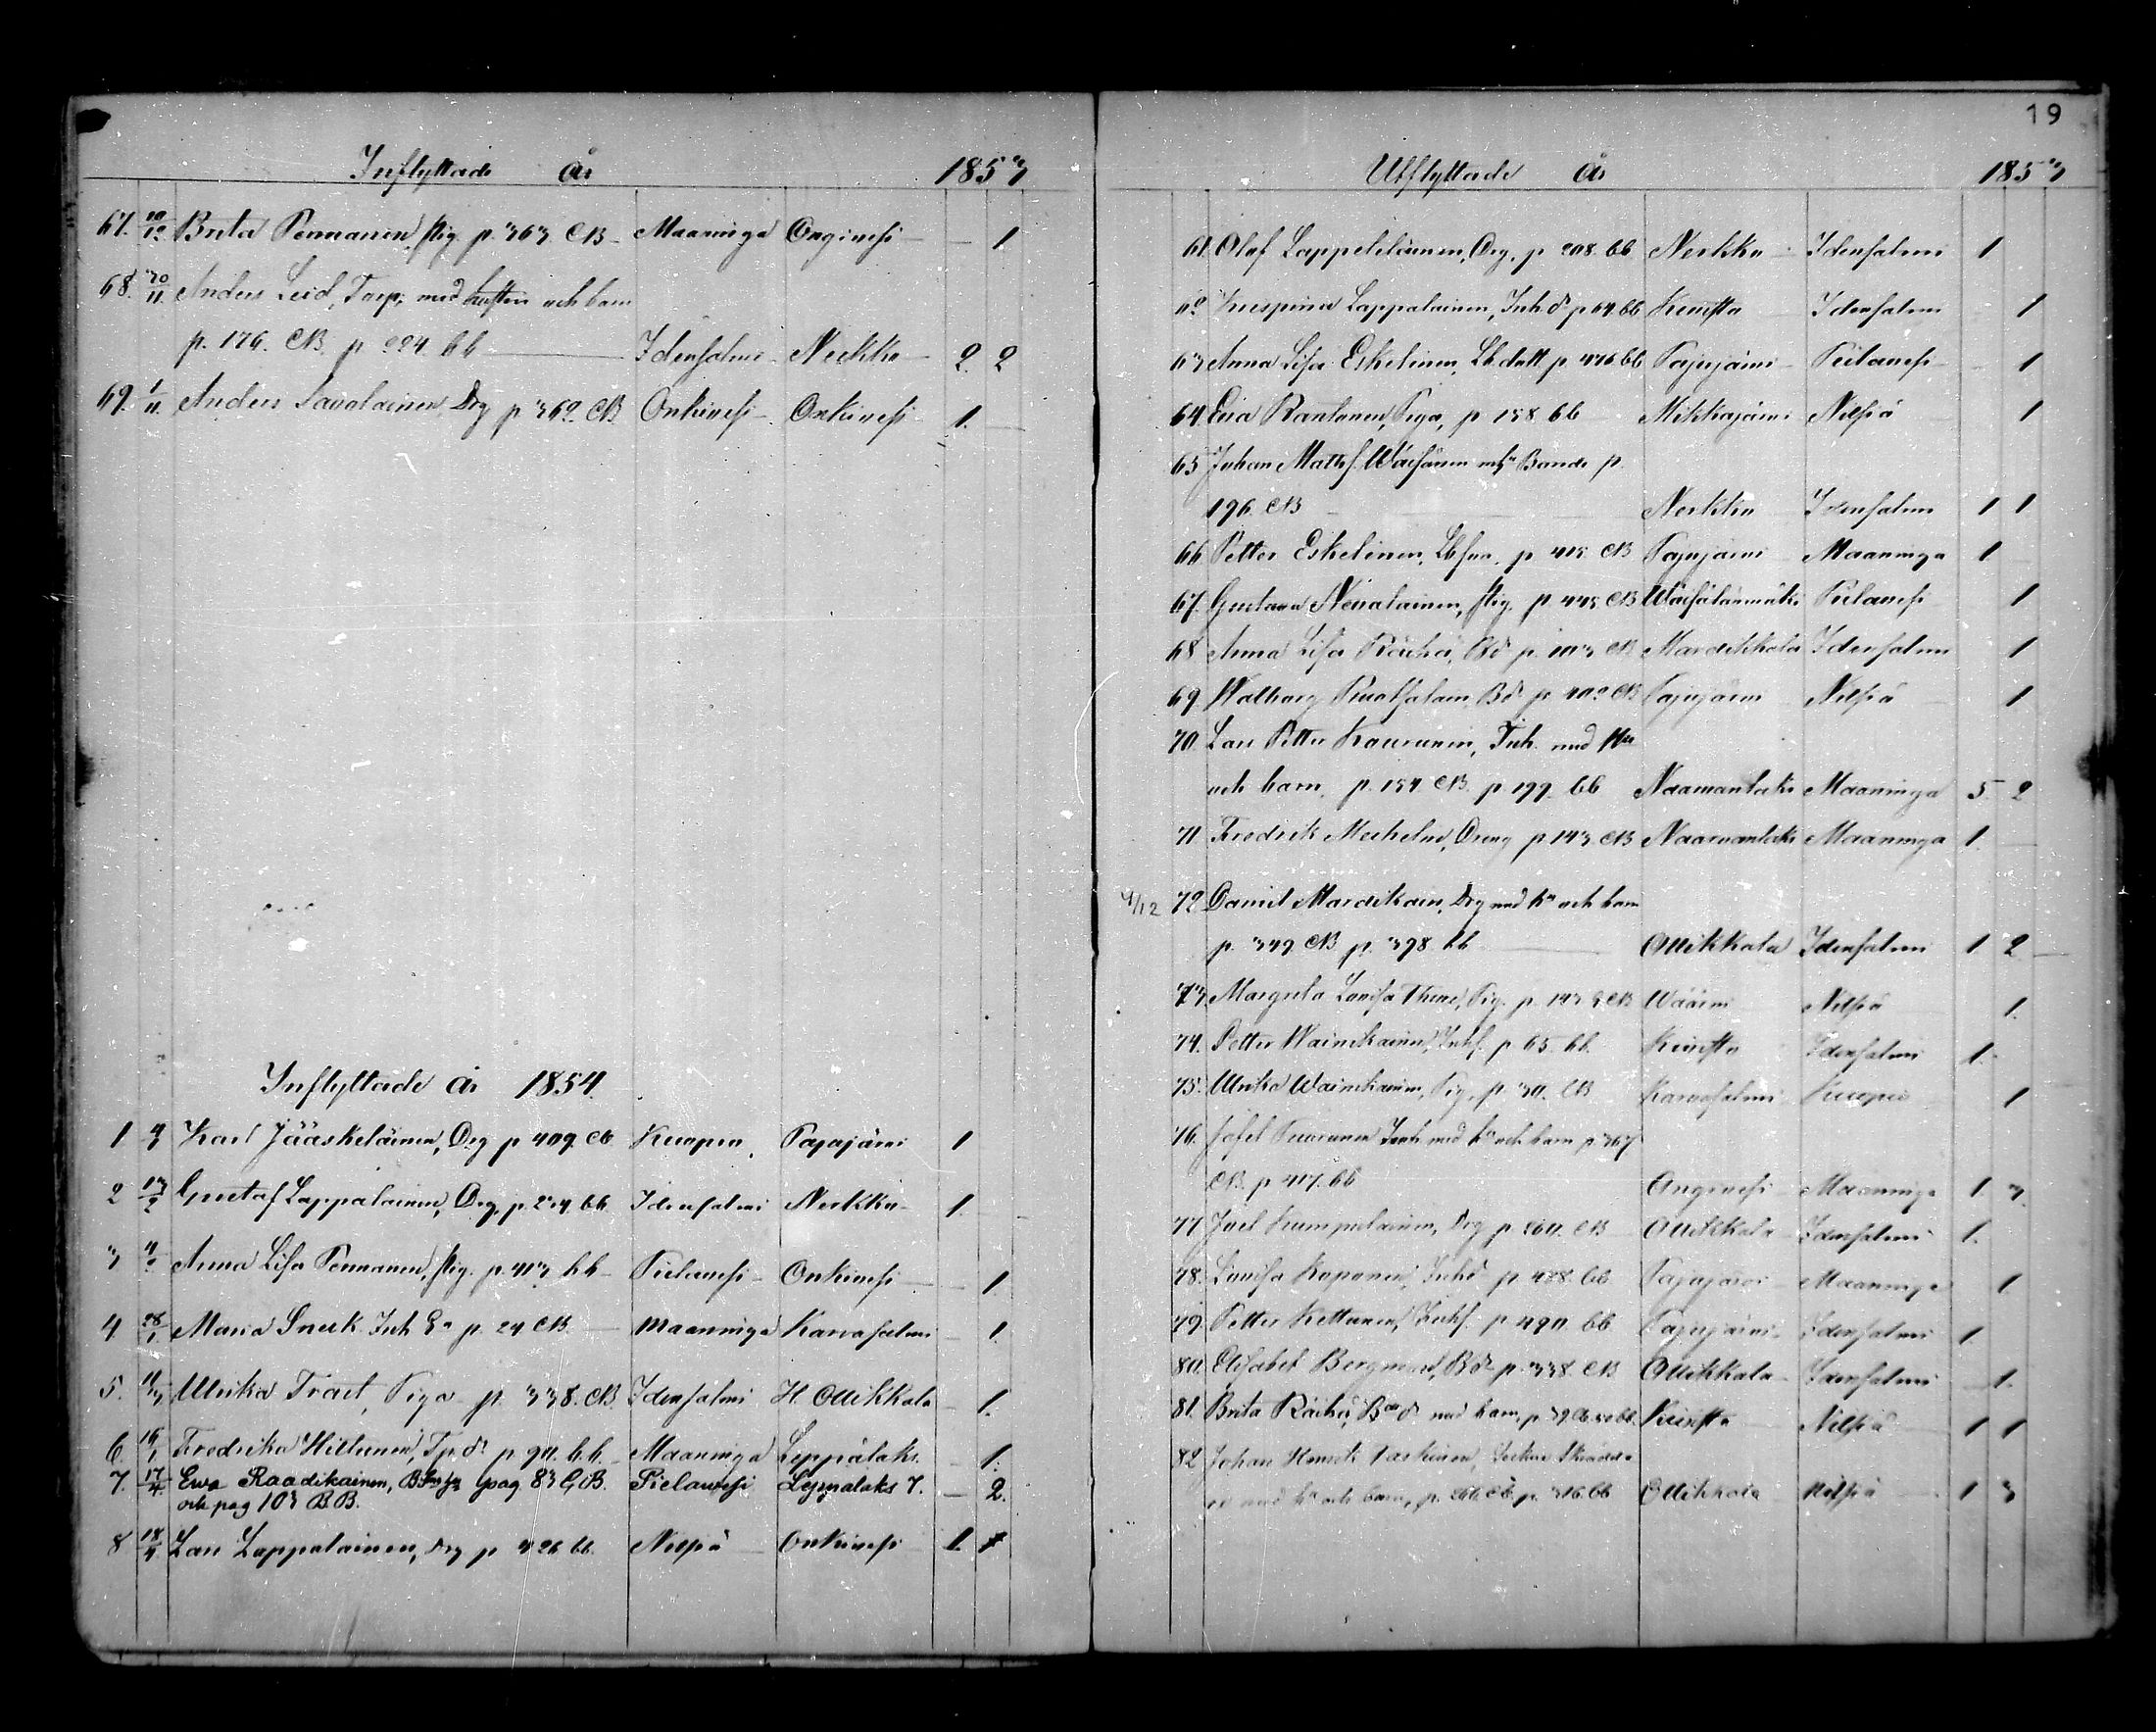 19
Inflyttade år 1853
67. Brita Pennanen, pig. p. 363. CB Maaninga Onginesi — 1
68. 30/11. Anders Leid, Torp. med hustru och barn
p. 176. CB. p 224 bb Idensalmi Nerkko 2. 2
69. 1/11. Anders Savolainen, Drg p 362 CB Onkivesi Onkivesi 1.
Inflyttade år 1854.
1 Karl Jääskeläinen, Drg p 409 CB. Kuopio Pajujärvi 1
2 13/2 Gustaf Lappalainen, Drg. p. 234 bb. Idensalmi Nerkko 1.
3 Anna Lisa Pennanen, pig. p. 413 bb Pielavesi Onkivesi 1.
4 28/1. Maria Snerk Inh. p. 24 CB. Maaninga Karvasalmi 1.
5. 11/3 Ulrika Traet, Piga p. 338. CB. Idensalmi H. Ollikkala 1.
6. 16/1 Fredrika Hiltunen, Tp.dr p 90. bb. Maaninga Leppälaks. 1.
7. 17/4. Ewa Raadikainen, pag 83 CB. Pielawesi Leppalaks 7. — 2.
och pag 103 BB.
8 18/4 Lars Lappalainen, Drg p 426 bb. Nilsiä Onkivesi 1.
Utflyttade år 1853
61. Olof Lappeteläinen, Drg, p 208. bb Nerkko Idensalmi 1
62 Krispina Lappalainen, Inh.dr p 64. bb Kumsta Idensalmi 1
63 Anna Lisa Eskelinen, Lb.dott p. 476 bb Pajujärvi Pielavesi 1
64. Eva Rantanen, Piga, p 158 bb Mikkajärvi Nilsiä 1
65 Johan Matts. Wäisänen Bonde p.
196. CB Nerkko Idensalmi 1 1
66 Petter Eskelinen, Lb.son. p 415 CB Pajujärvi Maaninga 1
67. Gustava Nevalainen, pig. p. 445 CB Wäisälänmäki Pielavesi 1
68 Anna Lisa Räihä, Bd. p. 103 CB Mardikkala Idensalmi 1
69. Walborg Ruotsalain, Bdr p. 402 CB Pajujärvi Nilsiä 1
70. Lars Petter Kaurunen, Inh. med Hu
och barn. p. 154 CB. p. 199. bb Naamanlaks Maaninga 5. 2
71. Fredrik Mechelin, Dreng p 143. CB Naarvanlaks Maaninga 1.
4/12 72 Daniel Mardikain, Drg med hu och barn
p. 349 CB p. 398. bb Ollikkala Idensalmi 1. 2
73. Margreta Lovisa Thune, Pig. p. 143 CB Wäärni Nilsiä 1.
74. Petter Wainikainen, Inhs. p 65. bb. Kumsta Idensalmi 1.
75. Ulrika Wainikainen, Pig. p. 30. CB Karvasalmi Kuopio 1
76. Josef Puurunen Inh med hu och barn p. 367
CB. p 417. bb Onginesi Maaninga 1. 3.
77. Joel Kumpulainen, Drg p 260. CB Ollikkala Idensalmi 1.
78. Lovisa Koponen, Inhdr p 428. bb. Pajujärvi Maaninga 1
79. Petter Kettunen, Inhs. p 490. bb Pajujärvi Idensalmi 1
80. Elisabet Bergman, Bdr p. 338. CB Ollikkala Idensalmi 1.
81. Brita Räihä, med barn, p. Kumsta Nilsiä 1 1
82 Johan Henrik Laskinen, Socken Skräddare
med hu och barn, p. 266. CB. p. 316. bb Ollikkala Nilsiä 1 3